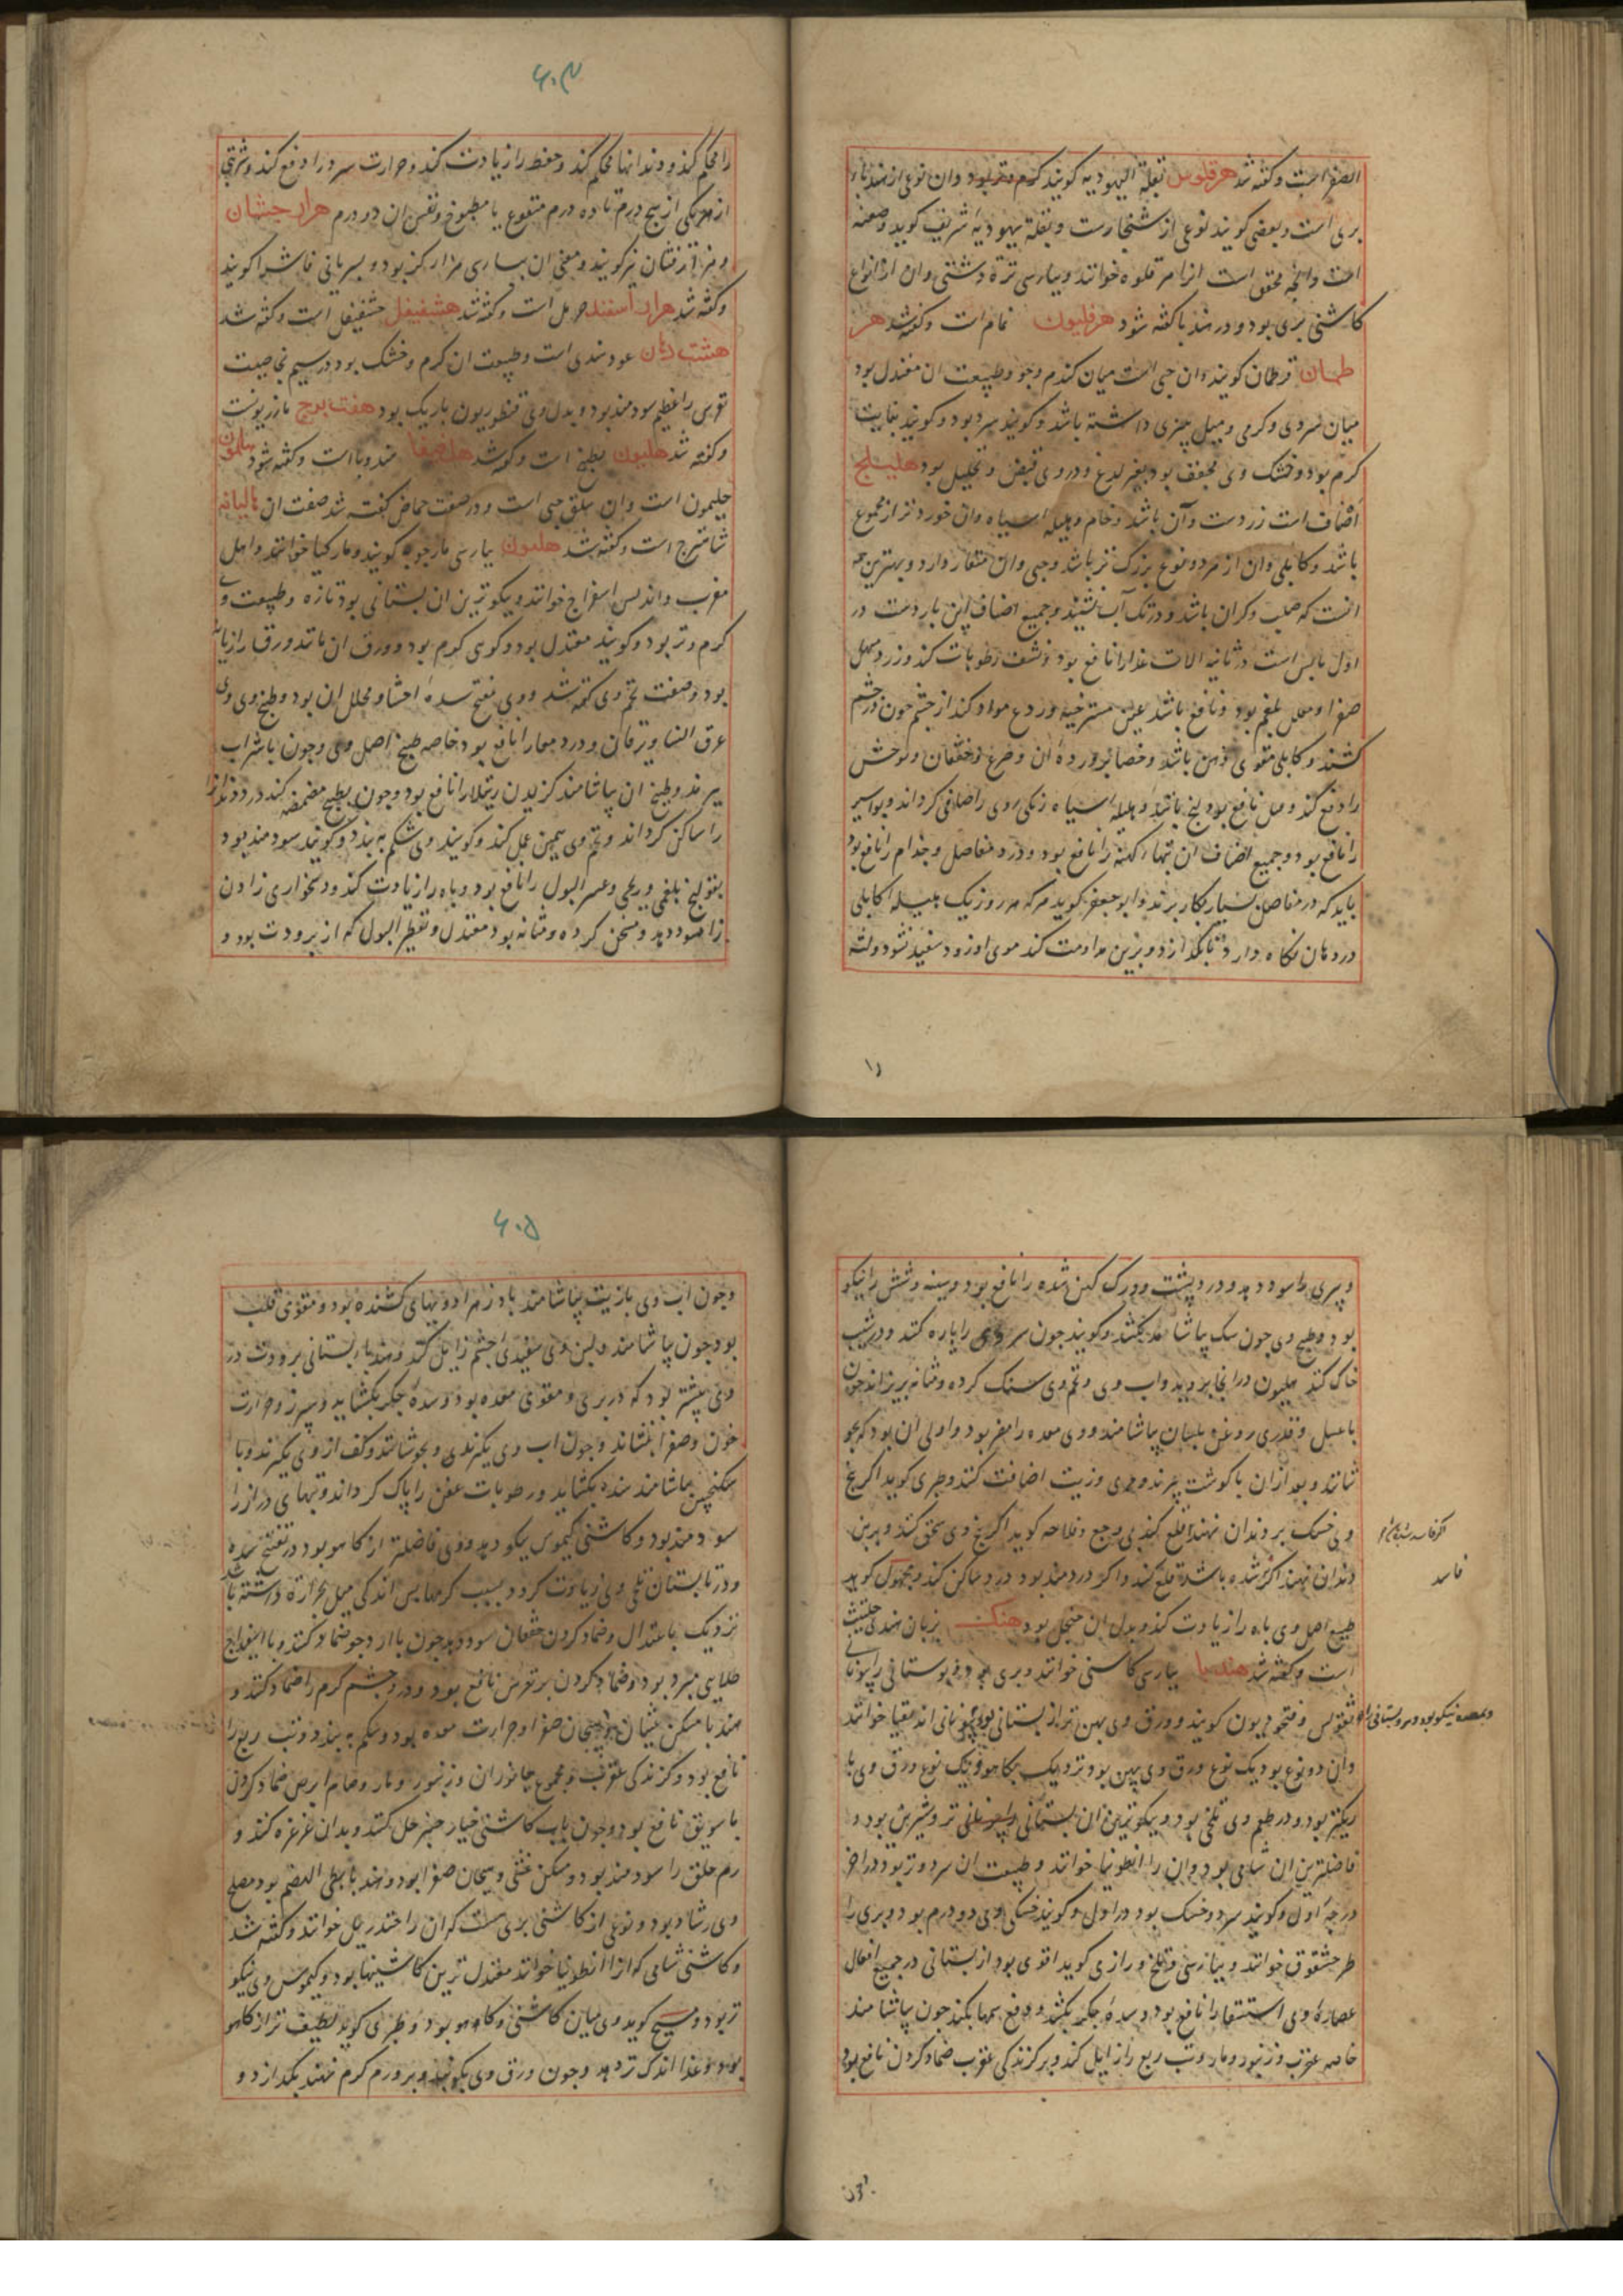 الصفر است وکفته شد هرقلوس بقلة الیهودیه کویند کرم وتر بود وان نوعی از هندباء
بری است وبعضی کویند نوعی از شنجارست وبقلة یهودیه شریف کوید وصعتر
است وانچه محقق است انرا مرقلوه خوانند وبپارسی تره دشتی وان از انواع
کاشنی بری بود ودر هندبا کفته شود هرفلیون نمام است وکفته شد هر
طمان قرطمان کویند وان حبی است میان کندم وجو وطبیعت ان معتدل بود
میان سردی وکرمی ومیل بچیزی داشته باشد وکویند سرد بود وکویند بغایت
کرم بود وخشک وی مجفف بود بغیر لدغ ودر وی قبض وتحلیل بود هلیلج
اصناف است زردست وآن باشد وخام وهلیله سیاه وان خوردتر از مجموع
باشد وکابلی وان از هر دو نوع بزرک تر باشد وحبی وان منقار دارد وبهترین همه
انست که صلب وکران باشد ودر تک آب نشیند وجمیع اصناف این باردست در
اول یابس است در ثانیه الات غذا را نافع بود ونشف رطوبات کند وزرد مسهل
صفرا ومحلل بلغم بود ونافع باشد عین مسترخیه وردع مواد کند از چشم چون در چشم
کشند وکابلی مقوی ذهن باشد وخصا پرورده آن وصرع وخفقان وتوحش
را دفع کند ومل نافع بود لخ باشد وهلیله سیاه زنکی روی را صافی کرداند وبواسیر
را نافع بود وجمیع اصناف ان تبهاء کهنه را نافع بود ودرد مفاصل وجذام را نافع بود
باید که در مفاصل بسیار بکار برند وابو جعفر کوید هرکه هر روز یک هلیله کابلی
در دهان نکاه دارد تا بکدازد وبرین مداومت کند موی او زود سفید نشود ولثه
۶۰۴
را محکم کند ودندانها محکم کند وحفظ را زیادت کند وحرارت سر در ا دفع کند وشربتی
از هریکی از پنج درم تا ده درم منقوع یا مطبوخ ونفس ان دو درم هزار جشان
وهزار افشان نیز کویند ومعنی ان بپارسی هزار کز بود وبسریانی فاشرا کویند
وکفته شد هزار اسفند حرمل است وکفته شد هشفیفل حشفیفل است وکفته شد
هشت دهان عود هندی است وطبیعت ان کرم وخشک بود در سیم بخاصیت
نقرس را عظیم سودمند بود وبدل وی قنطوریون باریک بود هفت برج مازریونست
وکفته شد هلیون بطیخ است وکفته شد هلضیفا هندوبا است وکفته شود هلمون
حلیمون است وان سلق جبی است ودر صفت حماض کفته شد صفت ان هالیانه
شاهترج است وکفته شد هلیون بپارسی مارجوبه کویند ومارکیا خوانند واهل
مغرب واندلس اسفراج خوانند ونیکوترین ان بستانی بود تازه وطبیعت وی
کرم وتر بود وکویند معتدل بود وکوی کرم بود وورق ان مانند ورق رازیانه
بود وصفت تخم وی کفته شد ووی مفتح سده احشا ومحلل ان بود وطبخ وی وی
عرق النسا ویرقان ودرد معا را نافع بود خاصه طبخ اصل وی وچون باشراب
بپزند وطبخ ان بیاشامند کزیدن رتیلا را نافع بود وچون بطبخ مضمضه کند درد دندان
را ساکن کرداند وتخم وی همین عمل کند وکویند وی شکم به بندد وکویند سودمند بود
بقولنج بلغمی وریحی وعسر البول را نافع بود وباه را زیادت کند ودشخواری زادن
را سود دهد ومسخن کرده ومثانه بود معتدل وتقطیر البول که از برودت بود و
وپیری را سود دهد ودرد پشت وورک کهن شده را نافع بود وسینه وشش را نیکو
بود وطبخ وی چون سک بیاشامد بکشد وکویند چون سروی را پاره کنند ودر شیب
خاک کنند هلیون در انجا بروید واب وی وتخم وی سنک کرده ومثانه بریزاند چون
با عسل وقدری روغن بلسان بیاشامند ووی معده را مضر بود واولی ان بود که بجو
شانند وبعد ازان با کوشت پزند ومری وزیت اضافت کنند وطبری کوید اکر بیخ
وی خشک بر دندان نهند قلع کند بی وجع وفلاحه کوید اکر بیخ وی سحق کنند وبر بن
دندان نهند اکر شده باشد قلع کند واکر دردمند بود درد ساکن کند ومجهول کوید
طبیخ اصل وی باه را زیادت کند وبدل ان هنجل بود هنک بزبان هندی حلتیث
است وکفته شد هندبا بپارسی کاسنی خوانند وبری بود وبوستانی را بیونانی
انتقولس وقنخودیون کویند وورق وی پهن تر از بستانی بود وبیونانی اندیقیا خوانند
وان دو نوع بود یک نوع ورق وی پهن بود ونزدیک بکاهو ویک نوع ورق وی با
ریکتر بود ودر طعم وی تلخی بود ونیکوترین ان بستانی تر وشیرین بود و
فاضلترین ان شامی بود وان را انطونیا خوانند وطبیعت ان سرد وتر بود در اخر
درجه اول وکویند سرد وخشک بود در اول وکویند خشکی وی در دوم بود وبری را
طرحشقوق خوانند وبپارسی تلخ ورازی کوید اقوی بود از بستانی در جمیع افعال
عصاره وی استسقا را نافع بود وسده جکر بکشد ودفع سمها بکند چون بیاشامند
خاصه عقرب وزنبور ومار وتب ربع را زایل کند وبر کزندکی عقرب ضماد کردن نافع بود
فاسد
۶۰۵
وچون اب وی با زیت بیاشامند بادزهر ادویهای کشنده بود ومقوی قلب
بود چون بیاشامند ولبن وی سفیدی چشم زایل کند وهندباء بستانی برودت در
وی بیشتر بود که در بری ومقوی معده بود وسده جکر بکشاید وسپرز وحرارت
خون وصفرا بنشاند وچون اب وی بکیرند وبجوشانند وکف از وی بکیرند وبا
سکنجبین بیاشامند سده بکشاید ورطوبات عفن را پاک کرداند وتبهای دراز را
سودمند بود وکاشنی کیموس نیکو دهد ووی فاضلتر از کاهو بود در تفتیح سده
ودر تابستان تلخی وی زیادت کردد بسبب کرما پس اندکی میل بحرارة داشته باشد
نزدیک باعتدال وضماد کردن خفقان سود دهد چون با ارد جو ضماد کنند وبا اسفیداج
طلایی مبرد بود وضماد کردن بر نقرس نافع بود ودر چشم کرم را ضماد کنند و
هندبا مسکن غثیان وهیجان صفرا وحرارت معده بود وشکم به بندد وتب ربع را
نافع بود وکزندکی عقرب ومجموع جانوران وزنبور ومار وسام ابرص ضماد کردن
با سویق نافع بود وچون باب کاشنی خیار چنبر حل کنند وبدان غرغره کنند و
رم حلق را سودمند بود ومسکن غثی وهیجان صفرا بود وهندبا بطی الهضم بود مصلح
وی رشاد بود ونوعی از کاشنی بری ست که ان را خندریل خوانند وکفته شد
وکاشنی شامی که انرا انطونیا خوانند معتدل ترین کاشنیها بود وکیموس وی نیکو
تر بود ومسیح کوید وی میان کاشنی وکاهو بود وطبری کوید لطیف تر از کاهو
بود وغذا اندک تر دهد وچون ورق وی بکوبند وبر ورم کرم نهند بکدازد و